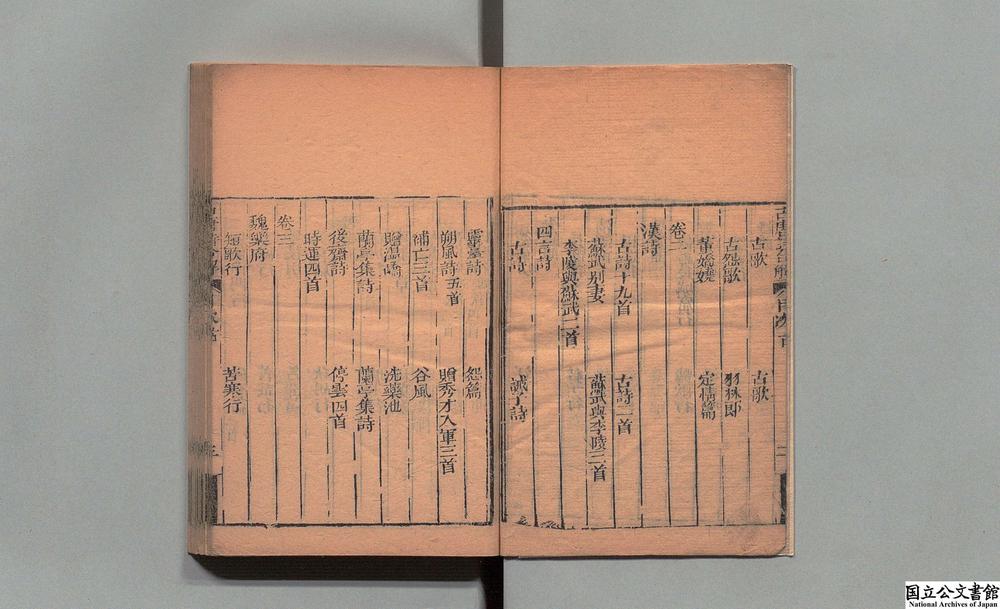 古歌　古歌
古怨歌　羽林郎
董嬌嬈　定情篇
卷二
漢詩
古詩十九首　古詩一首
蘇武别妻　蘇武與李陵三首
李陵與蘇武二首
四言詩
古詩　誡子詩
靈臺詩　怨篇
朔風詩五首　贈秀才入軍三首
補亡三首　谷風
贈温嶠　洗藥池
蘭亭集詩　蘭亭集詩
後齋詩　停雲四首
時運四首
卷三
魏樂府
短歌行　苦寒行
三
国立公文書館
National Archives of Japan